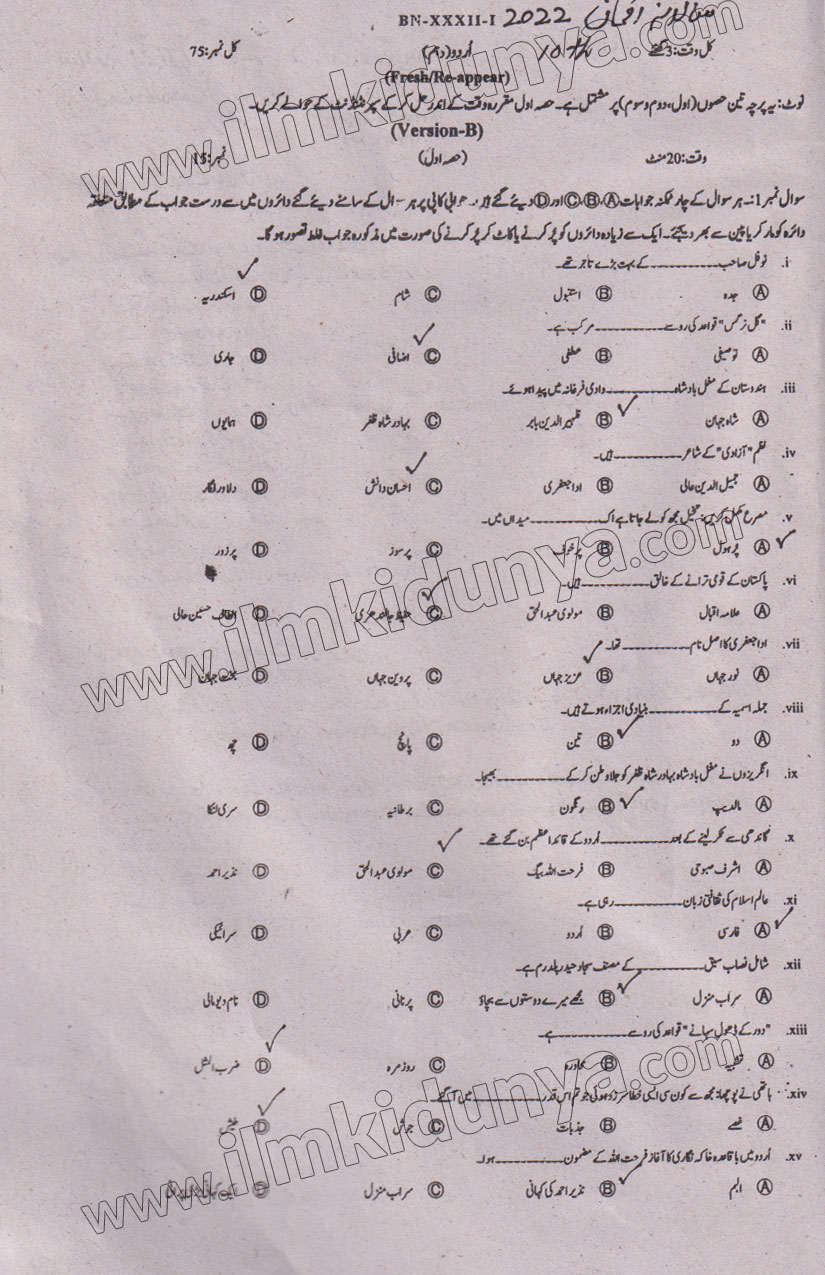 BN-XXXII-I سالانہ امتحان 2022
کل وقت:3 گھنٹے اُردو (دہم) 10th کل نمبر:75
(Fresh/Re-appear)
نوٹ: یہ پرچہ تین حصوں (اول، دوم و سوم) پر مشتمل ہے۔ حصہ اول مقررہ وقت کے اندر حل کر کے سپرنٹنڈنٹ کے حوالے کریں۔
(Version-B)
وقت:20 منٹ (حصہ اول) نمبر:15
سوال نمبر 1:۔ ہر سوال کے چار ممکنہ جوابات Ⓐ، Ⓑ، Ⓒ اور Ⓓ دیئے گئے ہیں۔ جوابی کاپی پر ہر سوال کے سامنے دیئے گئے دائروں میں سے درست جواب کے مطابق متعلقہ
دائرہ کو مارکر یا پین سے بھر دیجئے۔ ایک سے زیادہ دائروں کو پُر کرنے یا کاٹ کر پُر کرنے کی صورت میں مذکورہ جواب غلط تصور ہو گا۔
i. نوفل صاحب __________ کے بہت بڑے تاجر تھے۔
Ⓐ جدہ Ⓑ استنبول Ⓒ شام Ⓓ اسکندریہ
ii. "گل نرگس" قواعد کی رو سے __________ مرکب ہے۔
Ⓐ توصیفی Ⓑ عطفی Ⓒ اضافی Ⓓ جاری
iii. ہندوستان کے مغل بادشاہ __________ وادی فرغانہ میں پیدا ہوئے۔
Ⓐ شاہ جہان Ⓑ ظہیر الدین بابر Ⓒ بہادر شاہ ظفر Ⓓ ہمایوں
iv. نظم "آزادی" کے شاعر __________ ہیں۔
Ⓐ جمیل الدین عالی Ⓑ ادا جعفری Ⓒ احسان دانش Ⓓ دلاور فگار
v. مصرع مکمل کریں: تخیل مجھ کو لے جاتا ہے اک __________ میداں میں۔
Ⓐ پُر ہول Ⓑ پر خوف Ⓒ پر سوز Ⓓ پر زور
vi. پاکستان کے قومی ترانے کے خالق __________ ہیں۔
Ⓐ علامہ اقبال Ⓑ مولوی عبدالحق Ⓒ حفیظ جالندھری Ⓓ الطاف حسین حالی
vii. ادا جعفری کا اصل نام __________ تھا۔
Ⓐ نور جہاں Ⓑ عزیز جہاں Ⓒ پروین جہاں Ⓓ بخت جہان
viii. جملہ اسمیہ کے __________ بنیادی اجزاء ہوتے ہیں۔
Ⓐ دو Ⓑ تین Ⓒ پانچ Ⓓ چھ
ix. انگریزوں نے مغل بادشاہ بہادر شاہ ظفر کو جلا وطن کر کے __________ بھیجا۔
Ⓐ مالدیپ Ⓑ رنگون Ⓒ برطانیہ Ⓓ سری لنکا
x. گاندھی سے ٹکر لینے کے بعد __________ اُردو کے قائداعظم بن گئے تھے۔
Ⓐ اشرف صبوحی Ⓑ فرحت اللہ بیگ Ⓒ مولوی عبدالحق Ⓓ نذیر احمد
xi. عالم اسلام کی ثقافتی زبان __________ رہی ہے۔
Ⓐ فارسی Ⓑ اُردو Ⓒ عربی Ⓓ سرائیکی
xii. شامل نصاب سبق __________ کے مصنف سجاد حیدر یلدرم ہے۔
Ⓐ سراب منزل Ⓑ مجھے میرے دوستوں سے بچاؤ Ⓒ پرنانی Ⓓ نام دیو مالی
xiii. "دور کے ڈھول سہانے" قواعد کی رو سے __________ ہے۔
Ⓐ تشبیہ Ⓑ محاورہ Ⓒ روزمرہ Ⓓ ضرب المثل
xiv. ہاتھی نے پوچھا: مجھ سے کون سی ایسی خطا سرزد ہوئی جو تم اس قدر __________ میں آ گئے۔
Ⓐ غصے Ⓑ جذبات Ⓒ جوش Ⓓ طیش
xv. اُردو میں باقاعدہ خاکہ نگاری کا آغاز فرحت اللہ کے مضمون __________ ہوا۔
Ⓐ البم Ⓑ نذیر احمد کی کہانی Ⓒ سراب منزل Ⓓ
www.ilmkidunya.com
www.ilmkidunya.com
www.ilmkidunya.com